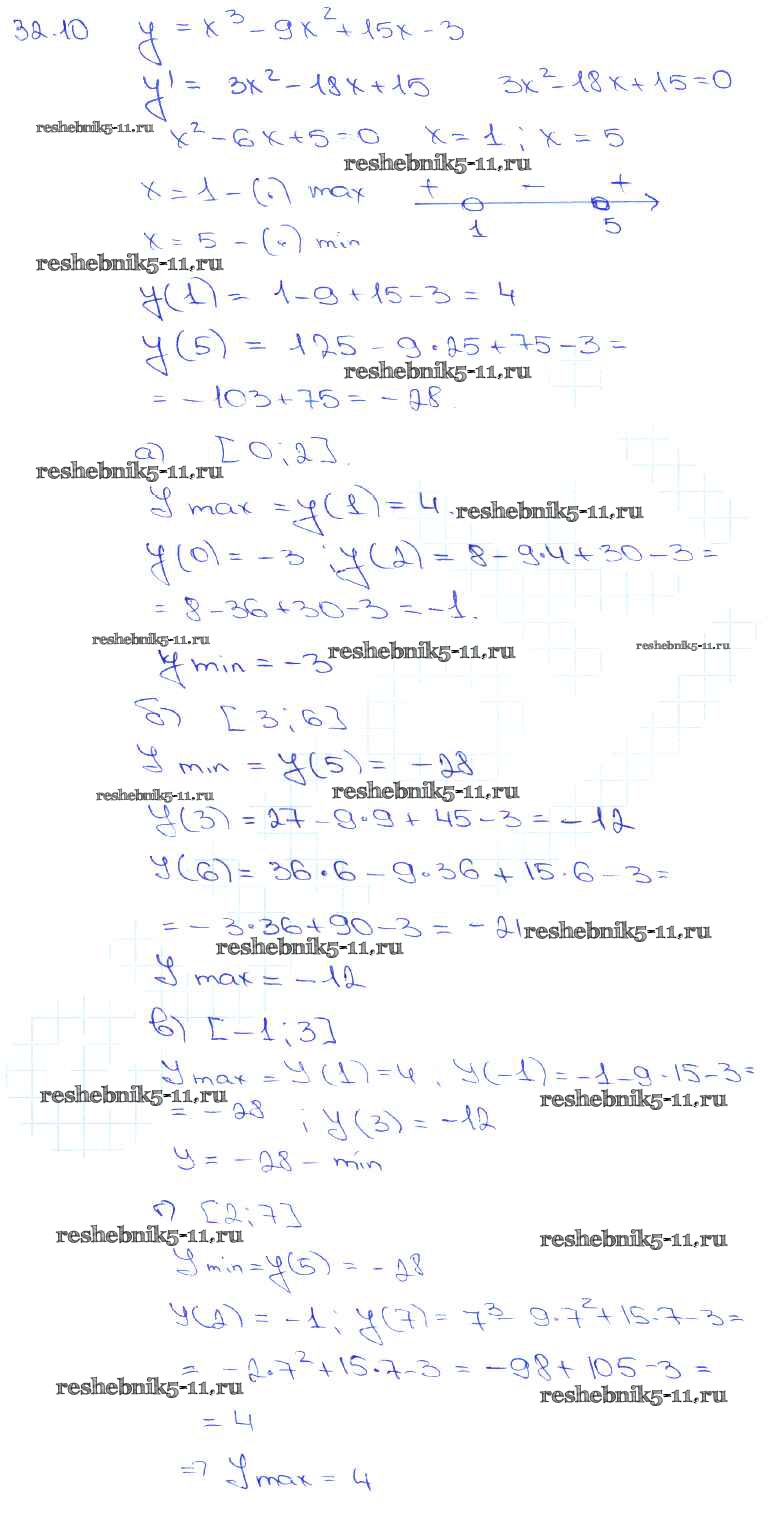 32.10 y = x³ - 9x² + 15x - 3
y' = 3x² - 18x + 15 3x² - 18x + 15 = 0
reshebnik5-11.ru
x² - 6x + 5 = 0 x = 1 ; x = 5
reshebnik5-11.ru
x = 1 - (•) max + - +
1 5
x = 5 - (•) min
reshebnik5-11.ru
y(1) = 1 - 9 + 15 - 3 = 4
y(5) = 125 - 9•25 + 75 - 3 =
reshebnik5-11.ru
= -103 + 75 = -28.
а) [0; 2].
reshebnik5-11.ru
y max = y(1) = 4. reshebnik5-11.ru
y(0) = -3 ; y(2) = 8 - 9•4 + 30 - 3 =
= 8 - 36 + 30 - 3 = -1.
reshebnik5-11.ru reshebnik5-11.ru
y min = -3 reshebnik5-11.ru
б) [3; 6]
y min = y(5) = -28
reshebnik5-11.ru reshebnik5-11.ru
y(3) = 27 - 9•9 + 45 - 3 = -12
y(6) = 36•6 - 9•36 + 15•6 - 3 =
= -3•36 + 90 - 3 = -21 reshebnik5-11.ru
reshebnik5-11.ru
y max = -12
в) [-1; 3]
y max = y(1) = 4, y(-1) = -1 - 9 - 15 - 3 =
reshebnik5-11.ru reshebnik5-11.ru
= -28 ; y(3) = -12
y = -28 - min
г) [2; 7]
reshebnik5-11.ru reshebnik5-11.ru
y min = y(5) = -28
y(2) = -1; y(7) = 7³ - 9•7² + 15•7 - 3 =
= -2•7² + 15•7 - 3 = -98 + 105 - 3 =
reshebnik5-11.ru reshebnik5-11.ru
= 4
=> y max = 4